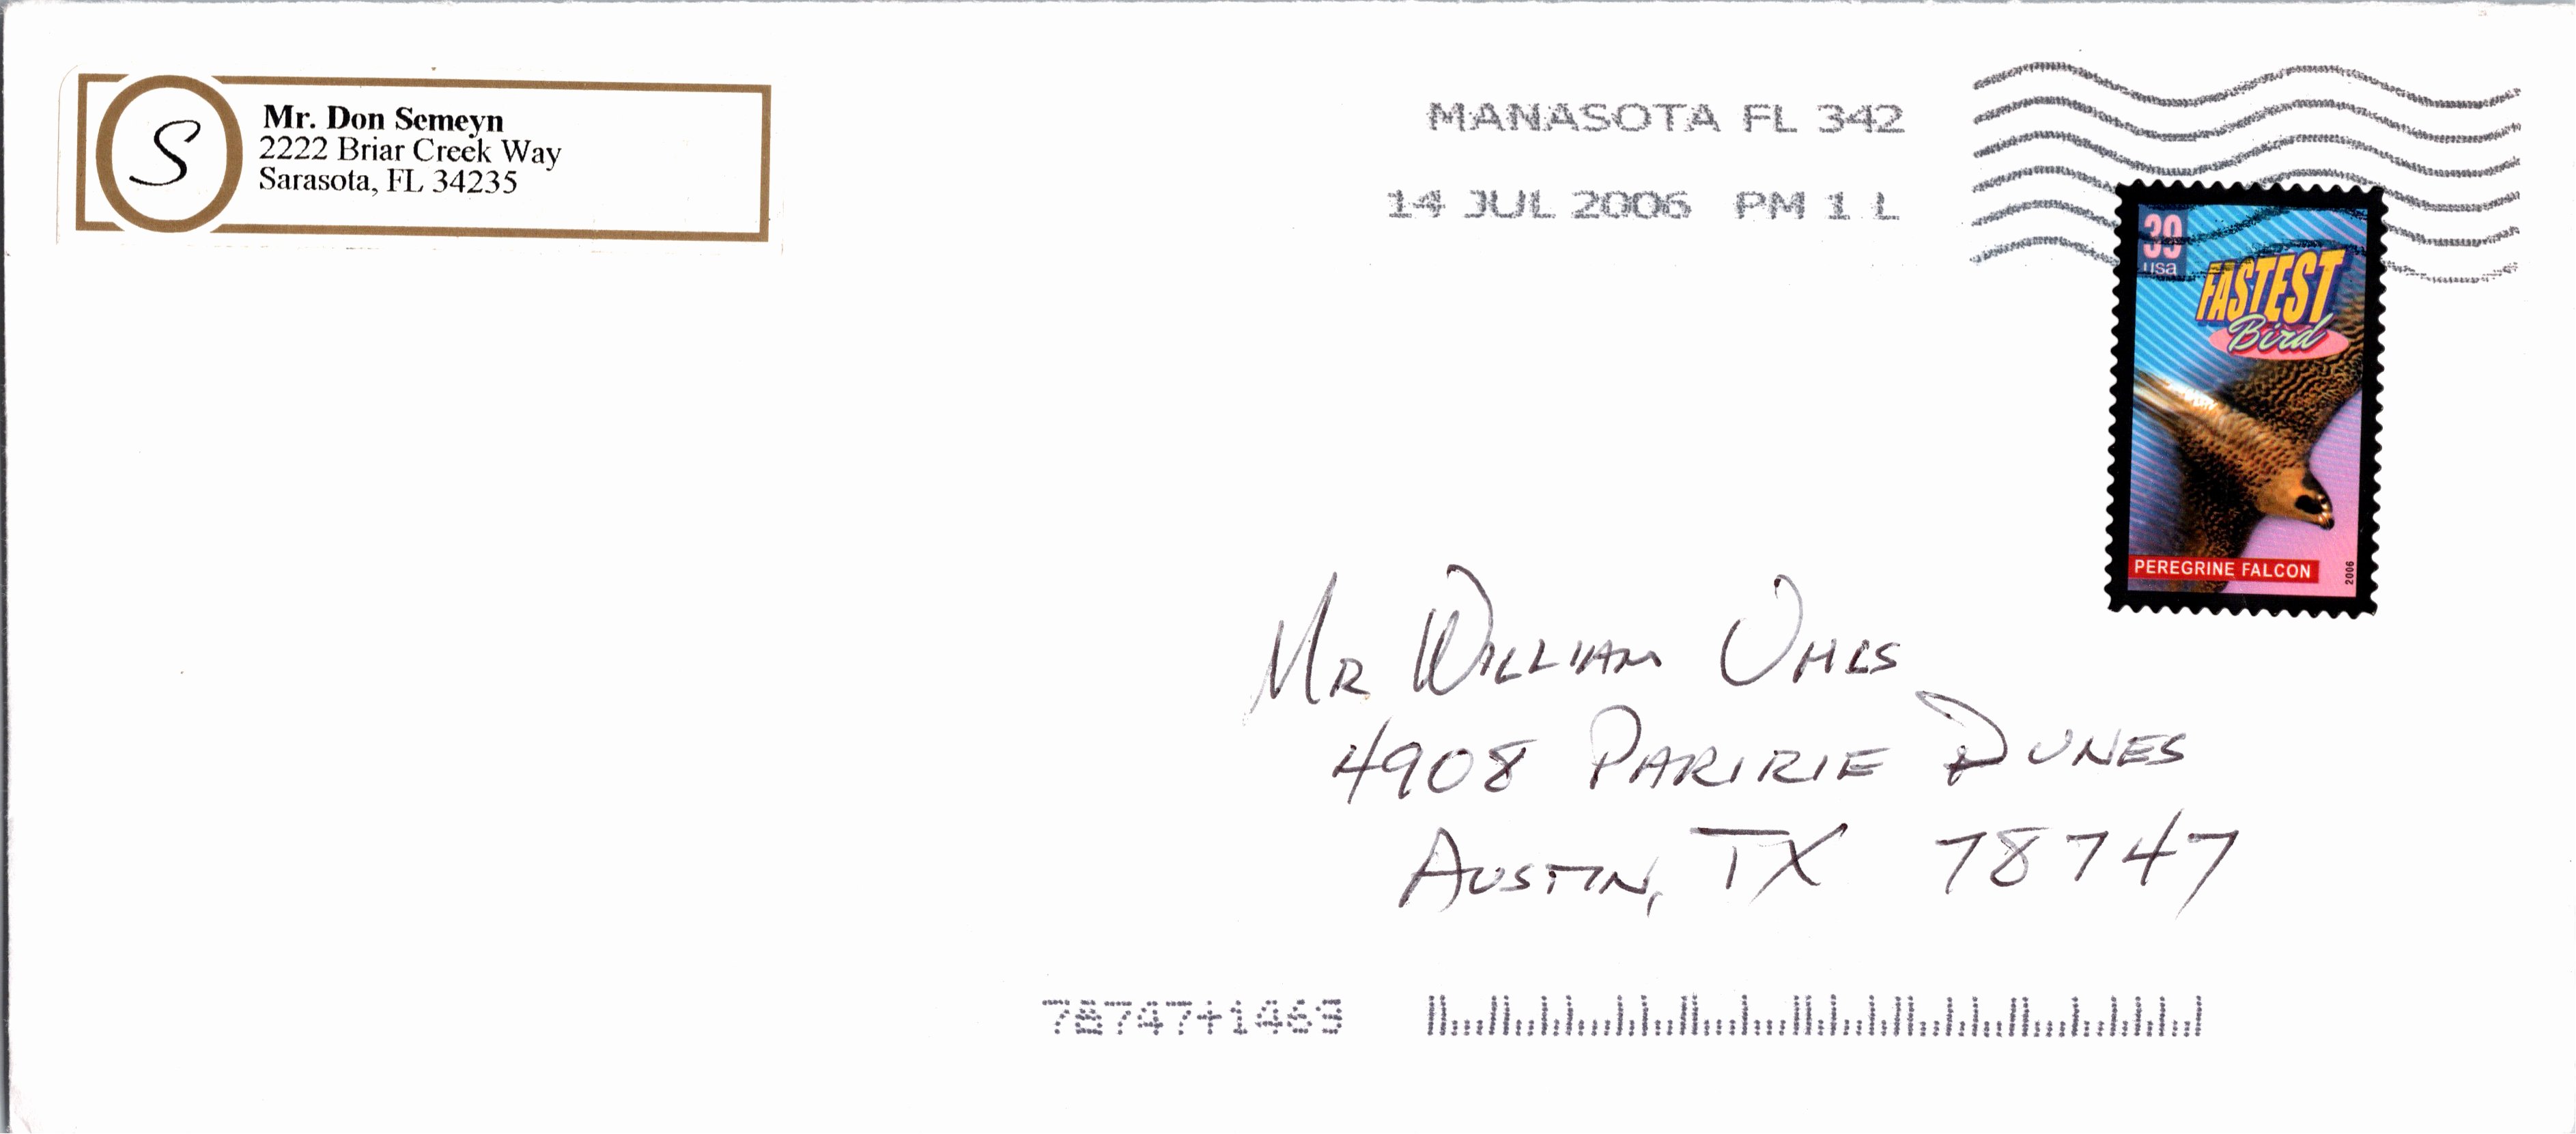 S
Mr. Don Semeyn
2222 Briar Creek Way
Sarasota, FL 34235
MANASOTA FL 342
14 JUL 2006 PM 1 L
39
usa
FASTEST
Bird
PEREGRINE FALCON
2006
MR WILLIAM UHLS
4908 PARIRIE DUNES
AUSTIN, TX 78747
78747+1463